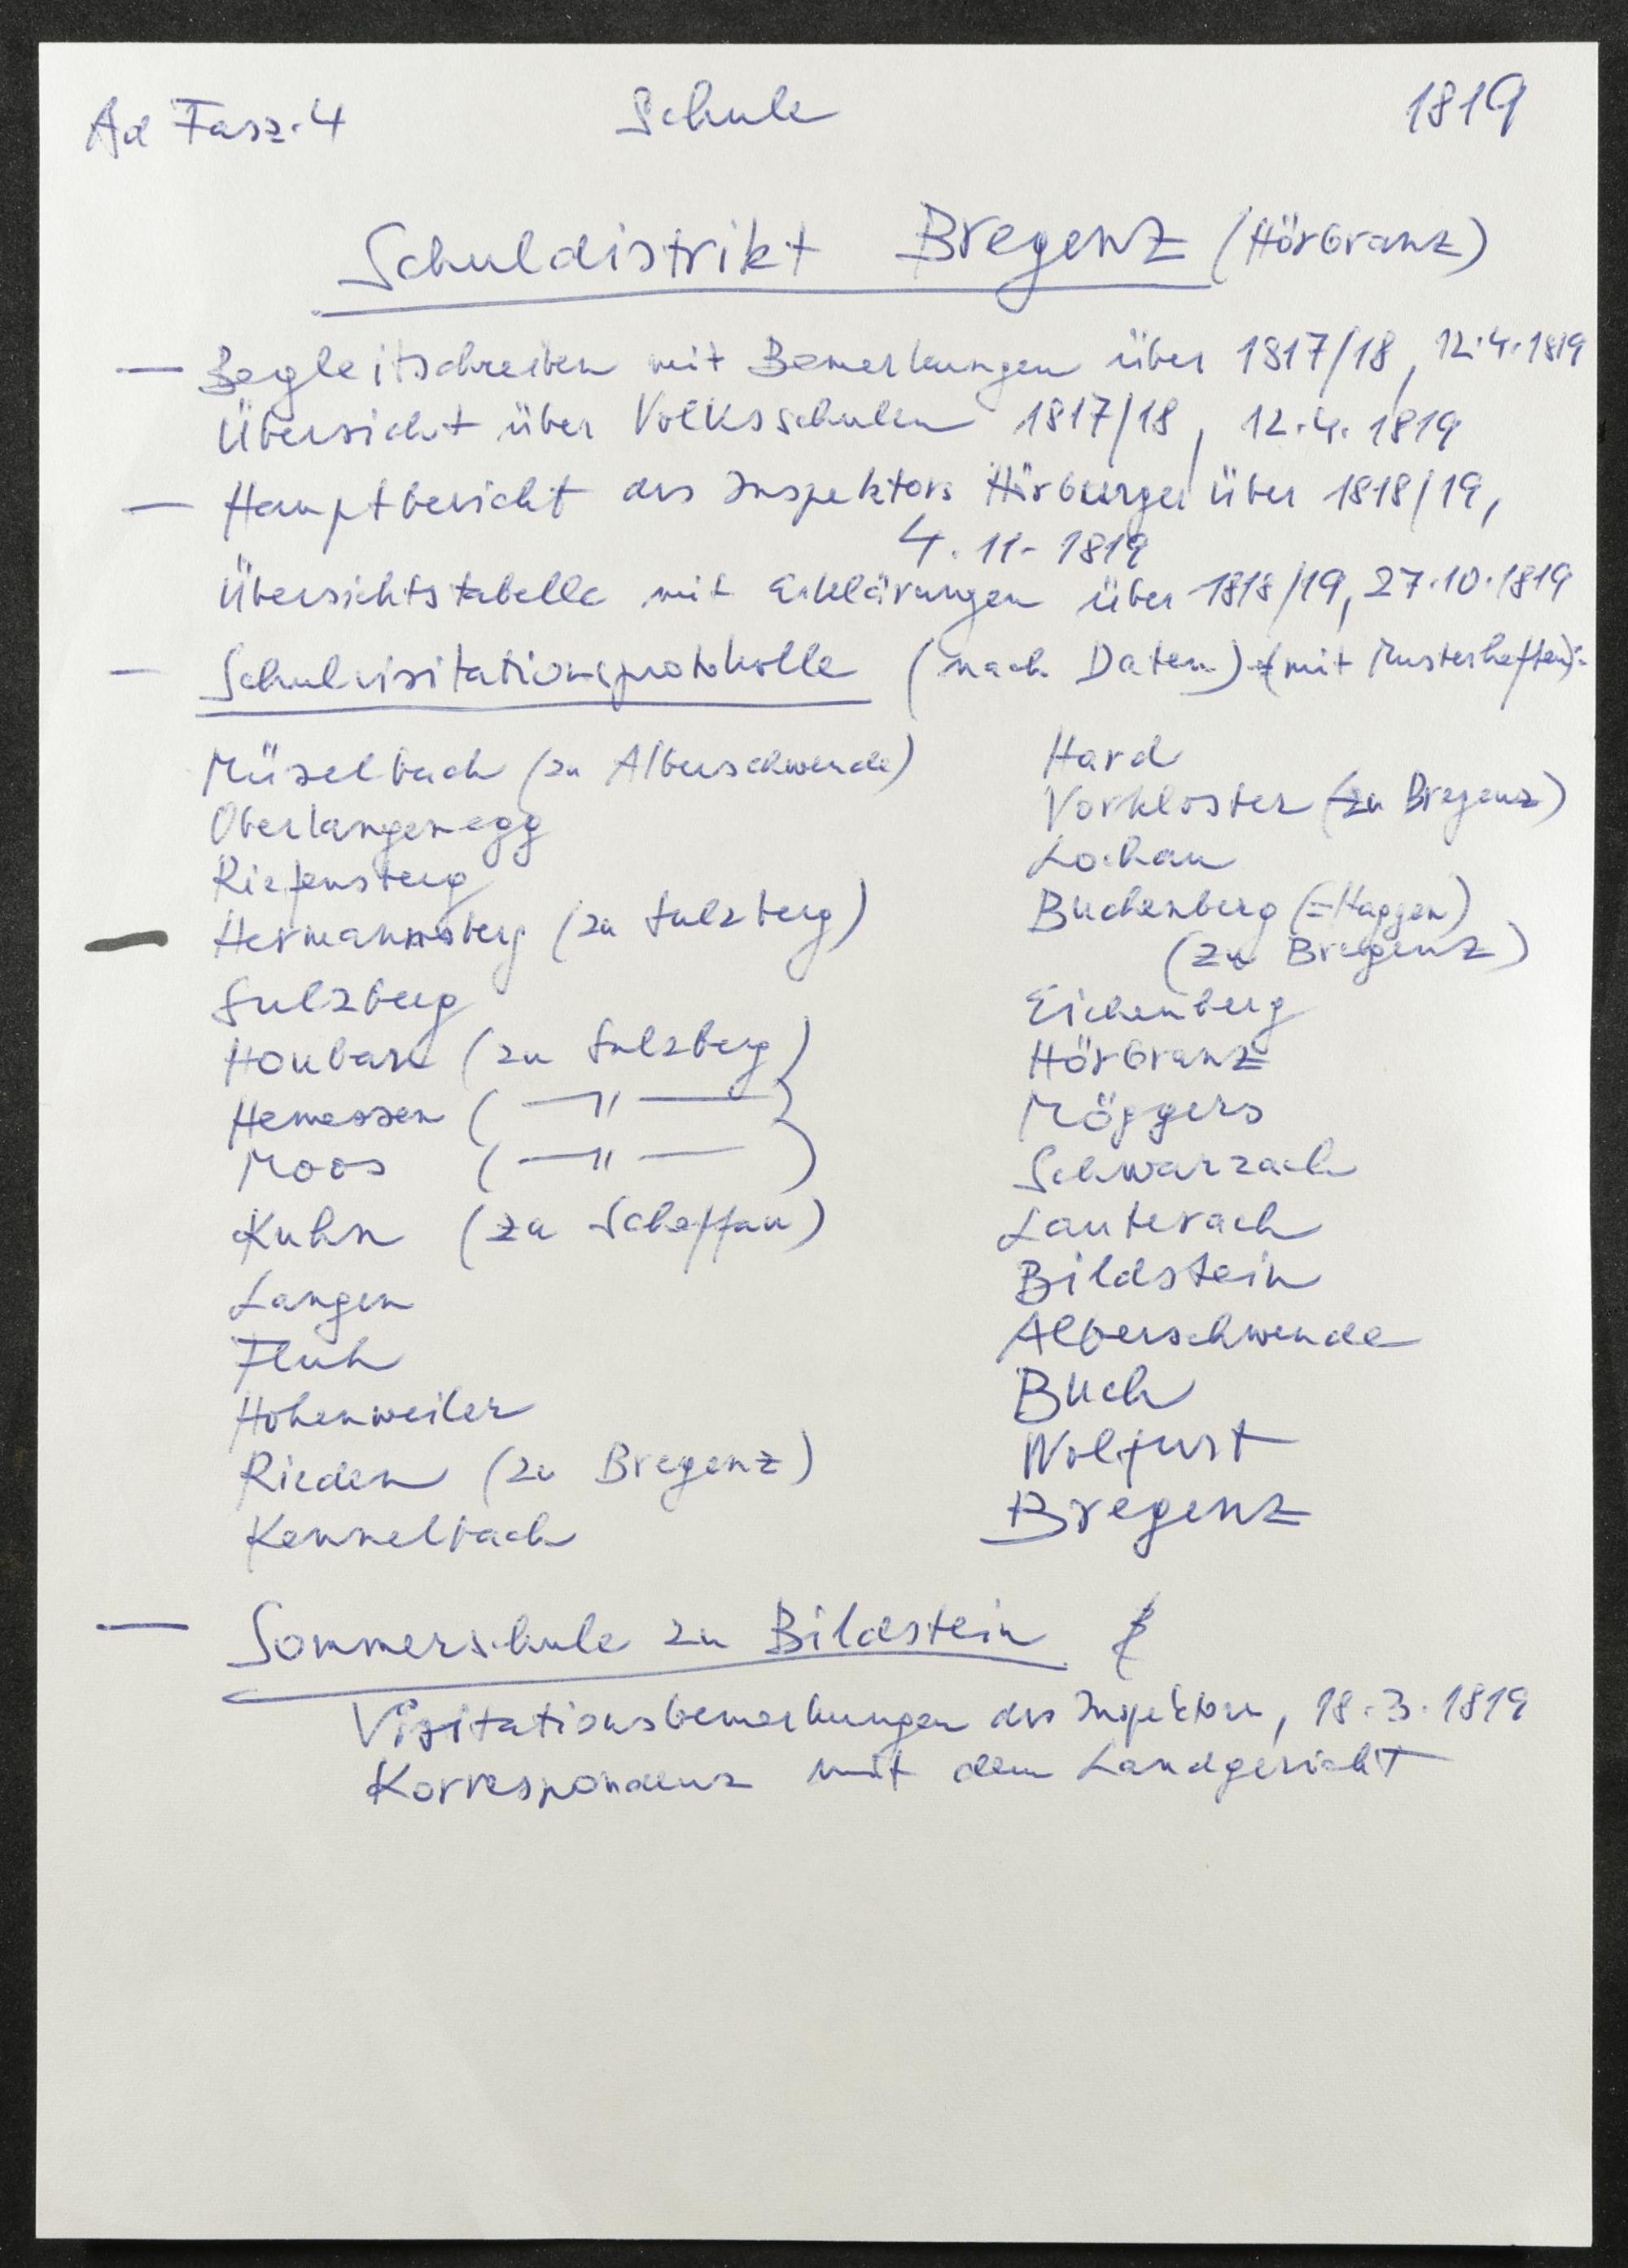 Ad Fasz. 4 Schule 1819
Schuldistrikt Bregenz (Hörbranz)
— Begleitschreiben mit Bemerkungen über 1817/18, 12.4.1819
Übersicht über Volksschulen 1817/18, 12.4.1819
— Hauptbericht des Inspektors Hörburger über 1818/19,
4.11.1819
Übersichtstabelle mit Erklärungen über 1818/19, 27.10.1819
— Schulvisitationsprotokolle (nach Daten) (mit Musterheften):
Müselbach (zu Alberschwende)
Oberlangenegg
Riefensberg
— Hermannsberg (zu Sulzberg)
Sulzberg
Houbarn (zu Sulzberg)
Hemessen ( —"— )
Moos ( —"— )
Kuhn (zu Scheffau)
Langen
Fluh
Hohenweiler
Rieden (zu Bregenz)
Kennelbach
Hard
Vorkloster (zu Bregenz)
Lochau
Buchenberg (=Haggen)
(zu Bregenz)
Eichenberg
Hörbranz
Möggers
Schwarzach
Lauterach
Bildstein
Alberschwende
Buch
Wolfurt
Bregenz
— Sommerschule zu Bildstein
Visitationsbemerkungen des Inspektors, 18.3.1819
Korrespondenz mit dem Landgericht